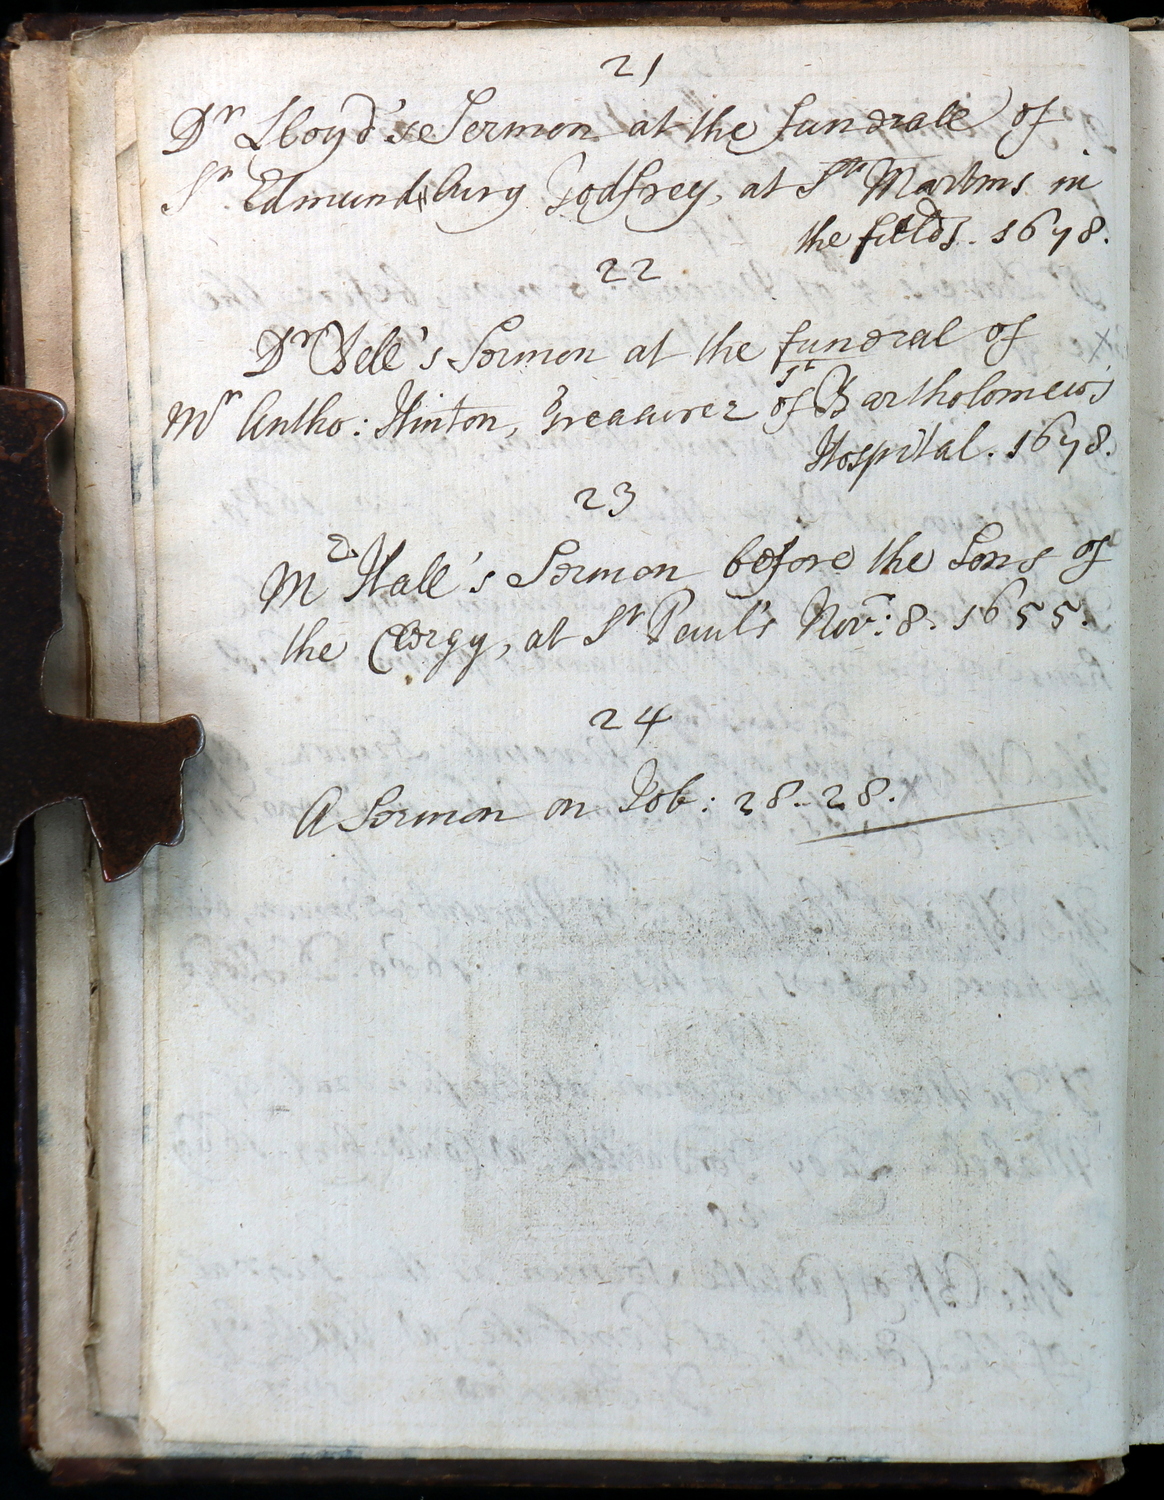 21
Dr Lloyd's Sermon at the fundrale of
Sr Edmundbury Godfrey, at St Martins in
the fields. 1678.
22
Dr Bell's Sermon at the fundral of
Mr Antho: Hinton, Treasurer of St Bartholomews
Hospital. 1678.
23
Mr Hall's Sermon before the Sons of
the Clergy, at St Paul's Novr: 8. 1655.
24
A Sermon on Job: 28. 28.